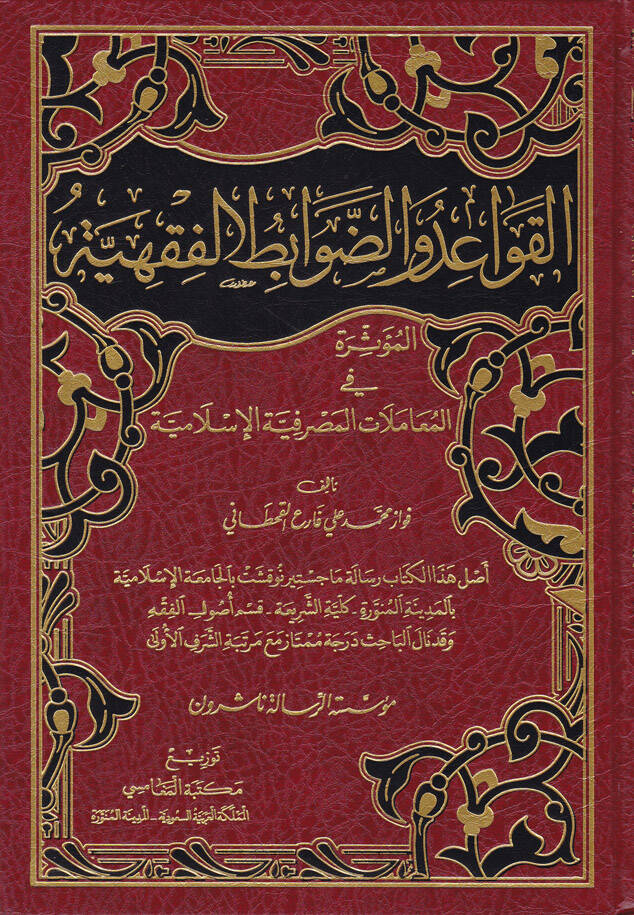 القَوَاعِدُ وَالضَّوَابِطُ الفِقْهِيَّةُ
المُؤَثِّرَة
في
المُعَامَلَات المَصْرفِيَّة الإِسْلَاميَّة
تأليف
فواز محمد علي فارع القحطاني
أَصْل هَذَا الكتَاب رسَالَة مَاجستِير نُوقشَتْ بالجَامعَة الإِسْلَاميَّة
بالمَدِينَة المُنَوَّرَة - كلِيَّة الشَّرِيعَة - قسْم أُصُول الفِقْه
وَقد نَالَ البَاحِث دَرَجَة مُمْتَاز مَعَ مَرتَبَة الشَّرَفِ الأُولَى
مؤسَّسَة الرسالة ناشرون
توزيع
مكتبة المغامسي
المَملَكَة العَرَبيَّة السعودية - المدينة المنوّرة